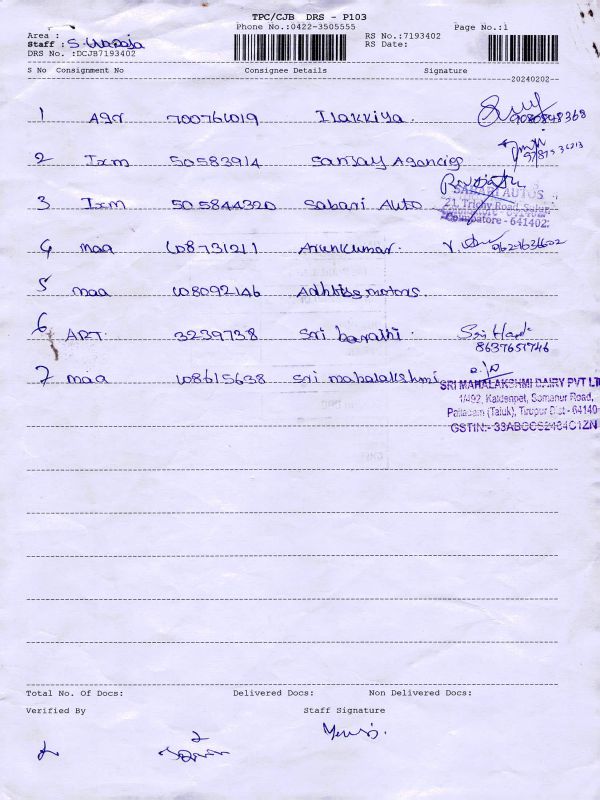 TPC/CJB DRS - P103
Phone No.:0422-3505555 Page No.:1
Area : RS No.:7193402
Staff : RS Date:
DRS No. :DCJB7193402
S No Consignment No Consignee Details Signature
20240202
1 700761019 Ilakkiya.
9080848368
2 Ixm 50583914 Sanjay Agencies
3 Ixm 505844320 Sabari Auto
SABARI AUTOS
21, Trichy Road, Sulur,
Coimbatore - 641402.
4 maa 108731011 Arunkumar.
5 maa 108092146 motors.
6 ART. 3239738 Sri barathi.
8637651746
7 maa 108615638 Sri mahalakshmi
SRI MAHALAKSHMI DAIRY PVT LT
1/492, Somanur Road,
Palladam (Taluk), Tirupur Dist - 64140
GSTIN:- 33ABCCS2484C1ZN
Total No. Of Docs: Delivered Docs: Non Delivered Docs:
Verified By Staff Signature